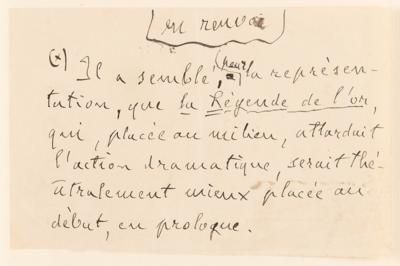 en renvoi
(*) Il a semblé, pour la représen-
tation, que la Légende de l'or,
qui, placée au milieu, attardait
l'action dramatique, serait thé-
âtralement mieux placée au
début, en prologue.